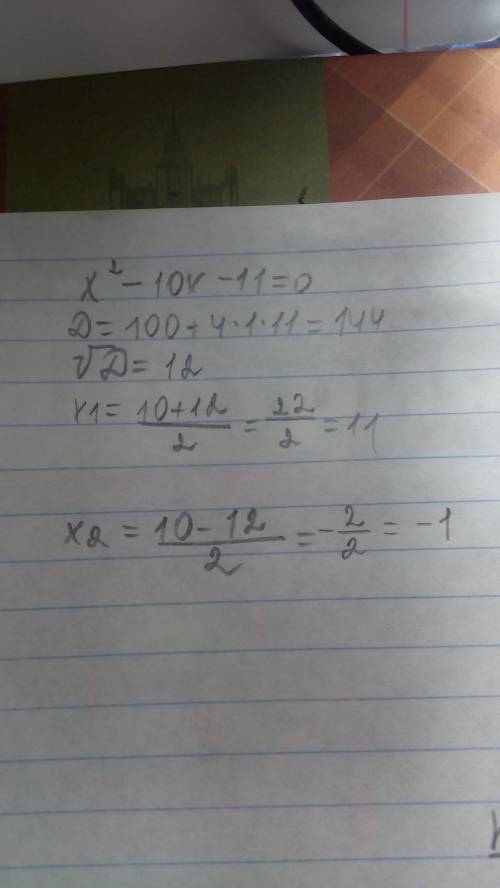 x² - 10x - 11 = 0
D = 100 + 4 · 1 · 11 = 144
√D = 12
x1 = (10+12)/2 = 22/2 = 11
x2 = (10-12)/2 = -2/2 = -1